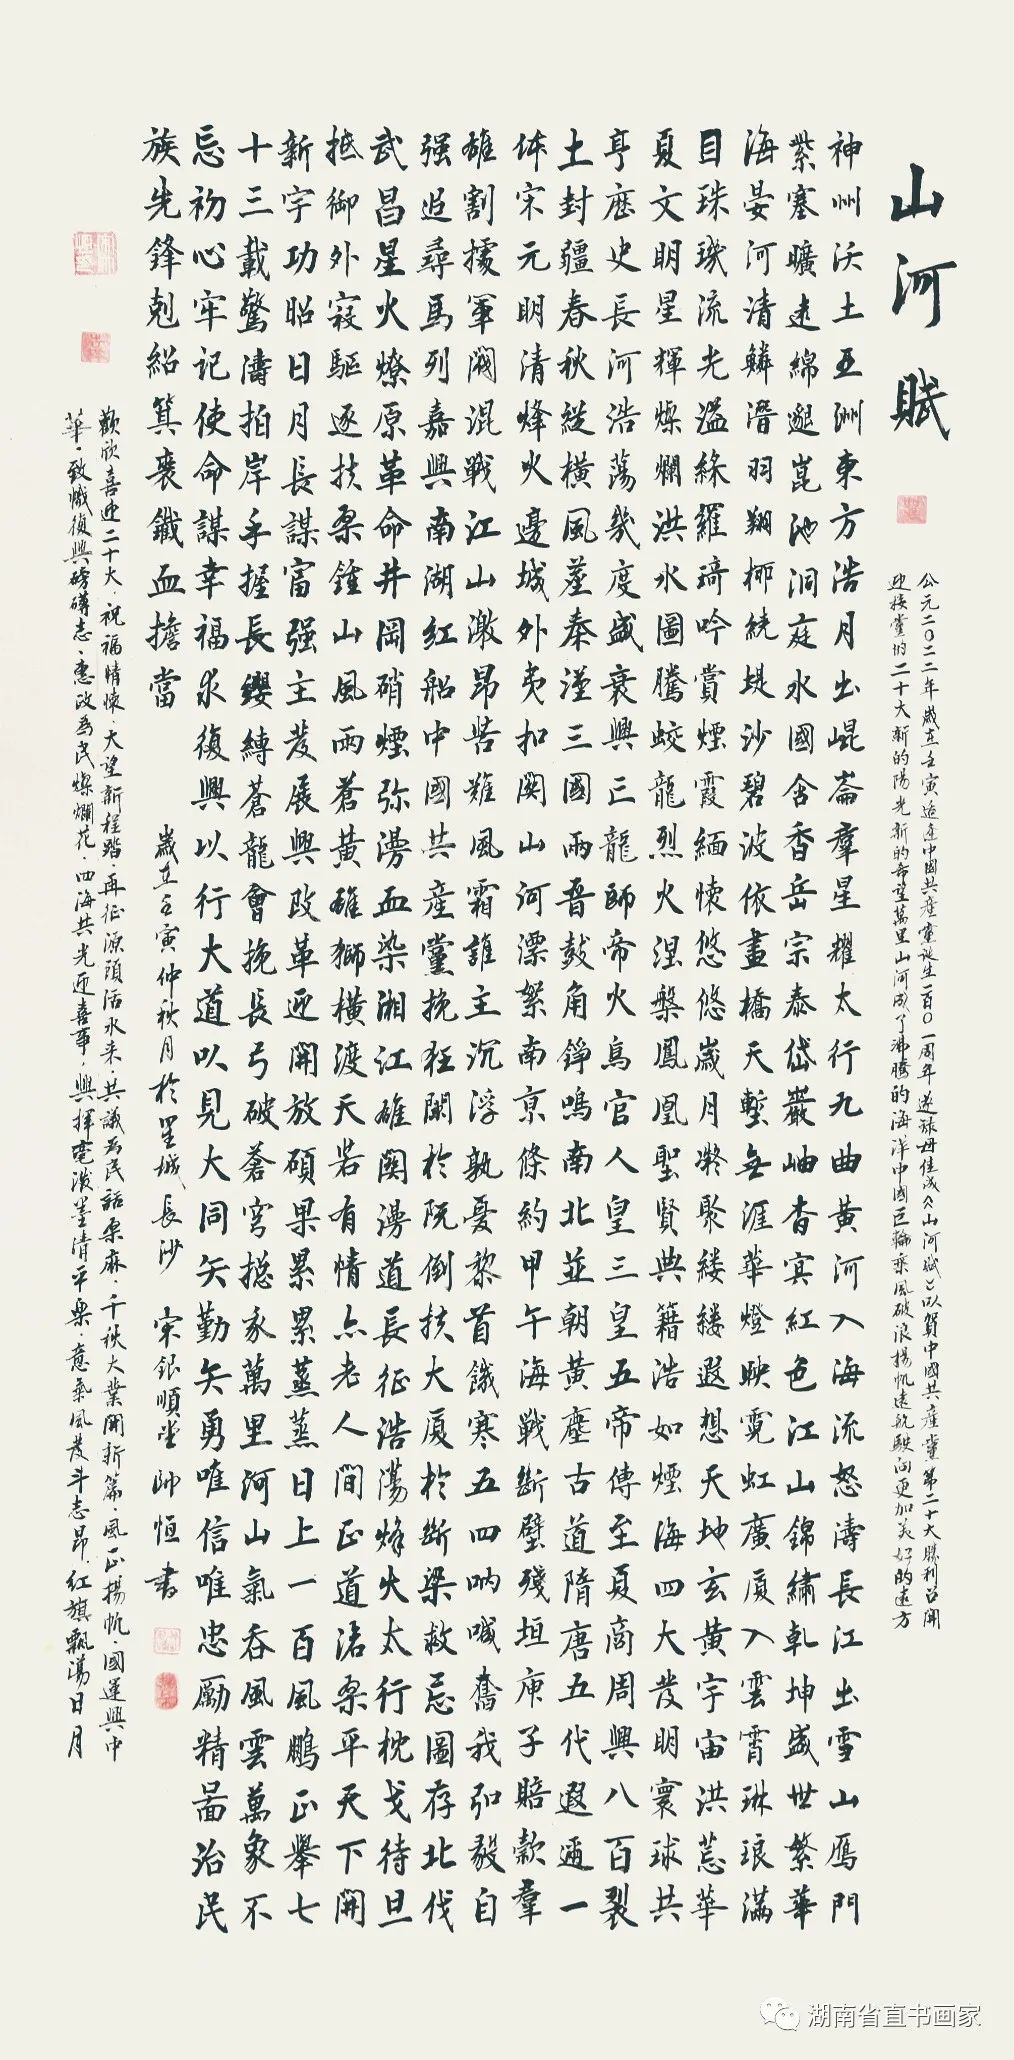 山河賦
公元二〇二二年歲在壬寅適逢中國共產黨誕生一百〇一周年遂詠母佳成《山河賦》以賀中國共產黨第二十大勝利召開
迎接黨的二十大新的陽光新的希望萬里山河成了沸騰的海洋中國巨輪乘風破浪揚帆遠航駛向更加美好的遠方
神州沃土亚洲東方浩月出崐崙羣星耀太行九曲黄河入海流怒濤長江出雪山雁門
紫塞曠遠綿邈崑池洞庭水國含香岳宗泰岱巖岫杳冥紅色江山錦繡乹坤盛世繁華
海晏河清鱗潛羽翔柳繞堤沙碧波依畫橋天塹無涯華燈映霓虹廣廈入雲霄琳琅滿
目珠璣流光溢綵羅琦吟賞煙霞緬懷悠悠歲月凝聚縷縷遐想天地玄黄宇宙洪荒華
夏文明星輝燦爛洪水圖騰蛟龍烈火涅槃鳳凰聖賢典籍浩如煙海四大發明寰球共
亨歷史長河浩蕩幾度盛衰興亡龍師帝火鳥官人皇三皇五帝傳至夏商周興八百裂
土封疆春秋縱横風虐秦漢三國兩晉鼓角錚鳴南北並朝黄塵古道隋唐五代遐邇一
体宋元明清烽火邊城外夷扣関山河漂絮南京條約甲午海戰斷壁殘垣庚子賠款羣
雄割據軍閥混戰江山激昂苦難風霜誰主沉浮孰憂黎首饿寒五四吶喊奮我弘毅自
强追尋馬列嘉興南湖紅船中國共産黨挽狂闌於既倒扶大廈於斷梁救忘圖存北伐
武昌星火燎原革命井岡硝煙弥漫血染湘江雄関漫道長征浩蕩烽火太行枕戈待旦
抵御外寇驅逐扶桑鍾山風雨蒼黄雄獅横渡天若有情亦老人間正道滄桑平天下開
新宇功昭日月長謀富强主發展興改革迎開放碩果累累蒸蒸日上一百風鵬正舉七
十三載驚濤拍岸手握長纓縛蒼龍會挽長弓破蒼穹總永萬里河山氣吞風雲萬象不
忘初心牢记使命謀幸福求復興以行大道以見大同矢勤矢勇唯信唯忠勵精圖治民
族先鋒剋紹箕裘鐵血擔當
歲在壬寅仲秋月於星城長沙 宋銀順坐帥恒書
歡欣喜迎二十大、祝福情懷、大望新程踏、再征源頭活水来、共議为民話桑麻、千秋大業開新篇、風正揚帆、國運興中
華、致憾復興磅礴志、惠政為民燦爛花、四海共光迎喜事、興揮毫潑墨清平樂、意氣風發斗志昂、紅旗飄揚日月
湖南省直书画家